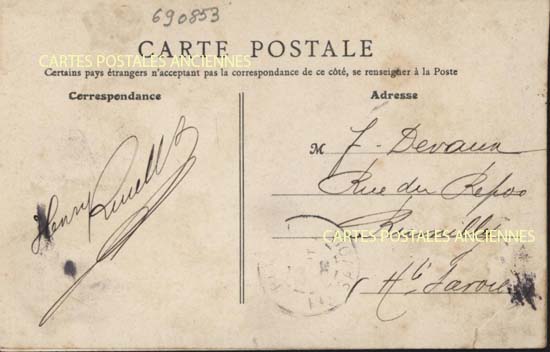 690853
CARTE POSTALE
CARTES POSTALES ANCIENNES
Certains pays étrangers n'acceptant pas la correspondance de ce côté, se renseigner à la Poste
Correspondance
Adresse
Henry
M J. Devaux
Rue du Repos
Rumilly
CARTES POSTALES ANCIENNES
Hte Savoie